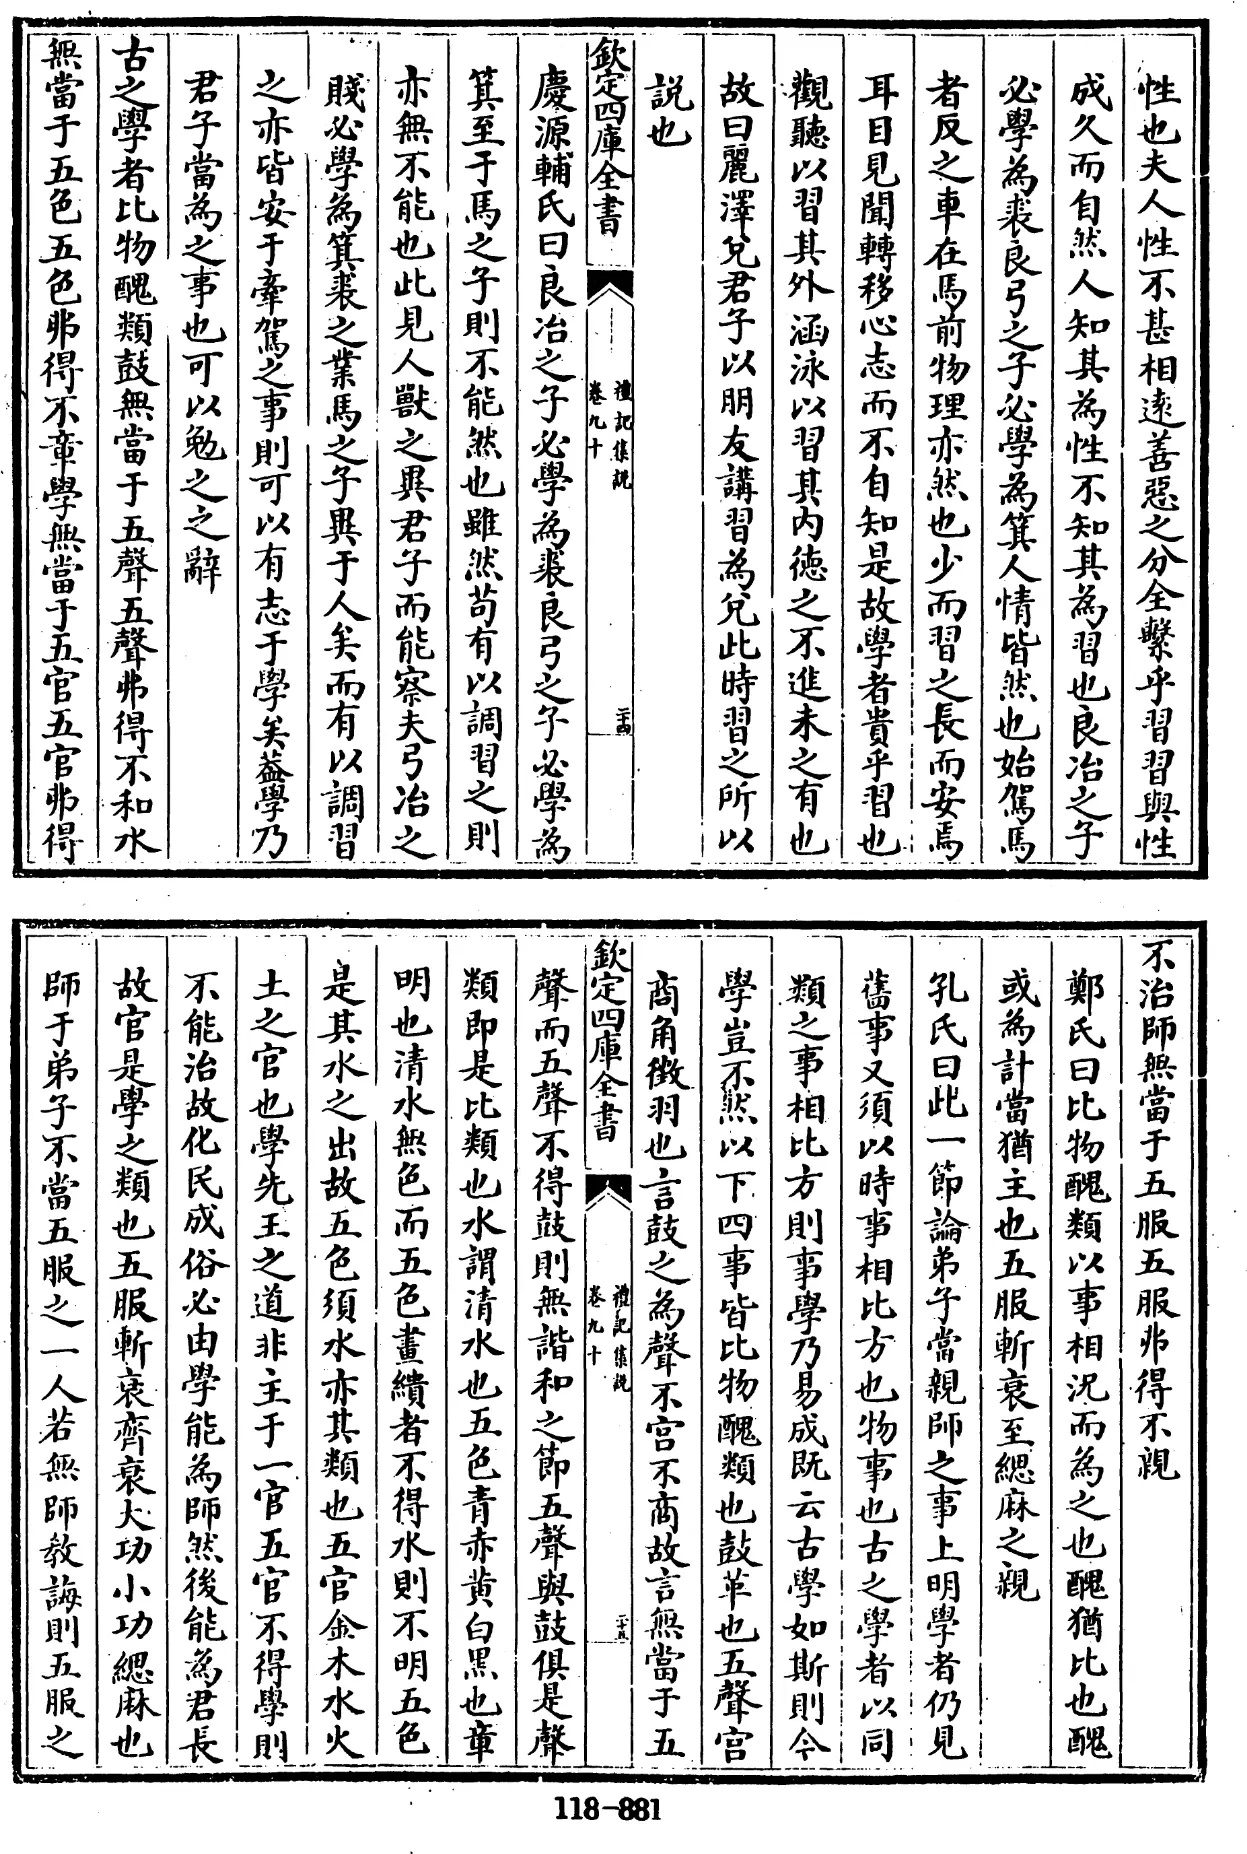 性也夫人性不甚相逺善惡之分全繫乎習習與性
成久而自然人知其為性不知其為習也良冶之子
必學為裘良弓之子必學為箕人情皆然也始駕馬
者反之車在馬前物理亦然也少而習之長而安焉
耳目見聞轉移心志而不自知是故學者貴乎習也
觀聽以習其外涵泳以習其内德之不進未之有也
故曰麗澤兑君子以朋友講習為兑此時習之所以
説也
欽定四庫全書
禮記集説
卷九十
二十四
慶源輔氏曰良冶之子必學為裘良弓之子必學為
箕至于馬之子則不能然也雖然苟有以調習之則
亦無不能也此見人獸之異君子而能察夫弓冶之
賤必學為箕裘之業馬之子異于人矣而有以調習
之亦皆安于牽駕之事則可以有志于學矣葢學乃
君子當為之事也可以勉之之辭
古之學者比物醜類鼓無當于五聲五聲弗得不和水
無當于五色五色弗得不章學無當于五官五官弗得
不治師無當于五服五服弗得不親
鄭氏曰比物醜類以事相況而為之也醜猶比也醜
或為計當猶主也五服斬衰至緦麻之親
孔氏曰此一節論弟子當親師之事上明學者仍見
舊事又須以時事相比方也物事也古之學者以同
類之事相比方則事學乃易成既云古學如斯則今
學豈不然以下四事皆比物醜類也鼓革也五聲宫
商角徴羽也言鼓之為聲不宫不商故言無當于五
欽定四庫全書
禮記集説
卷九十
二十五
聲而五聲不得鼓則無諧和之節五聲與鼓俱是聲
類即是比類也水謂清水也五色青赤黄白黑也章
明也清水無色而五色畫繢者不得水則不明五色
是其水之出故五色須水亦其類也五官金木水火
土之官也學先王之道非主于一官五官不得學則
不能治故化民成俗必由學能為師然後能為君長
故官是學之類也五服斬衰齊衰大功小功緦麻也
師于弟子不當五服之一人若無師教誨則五服之
118-881